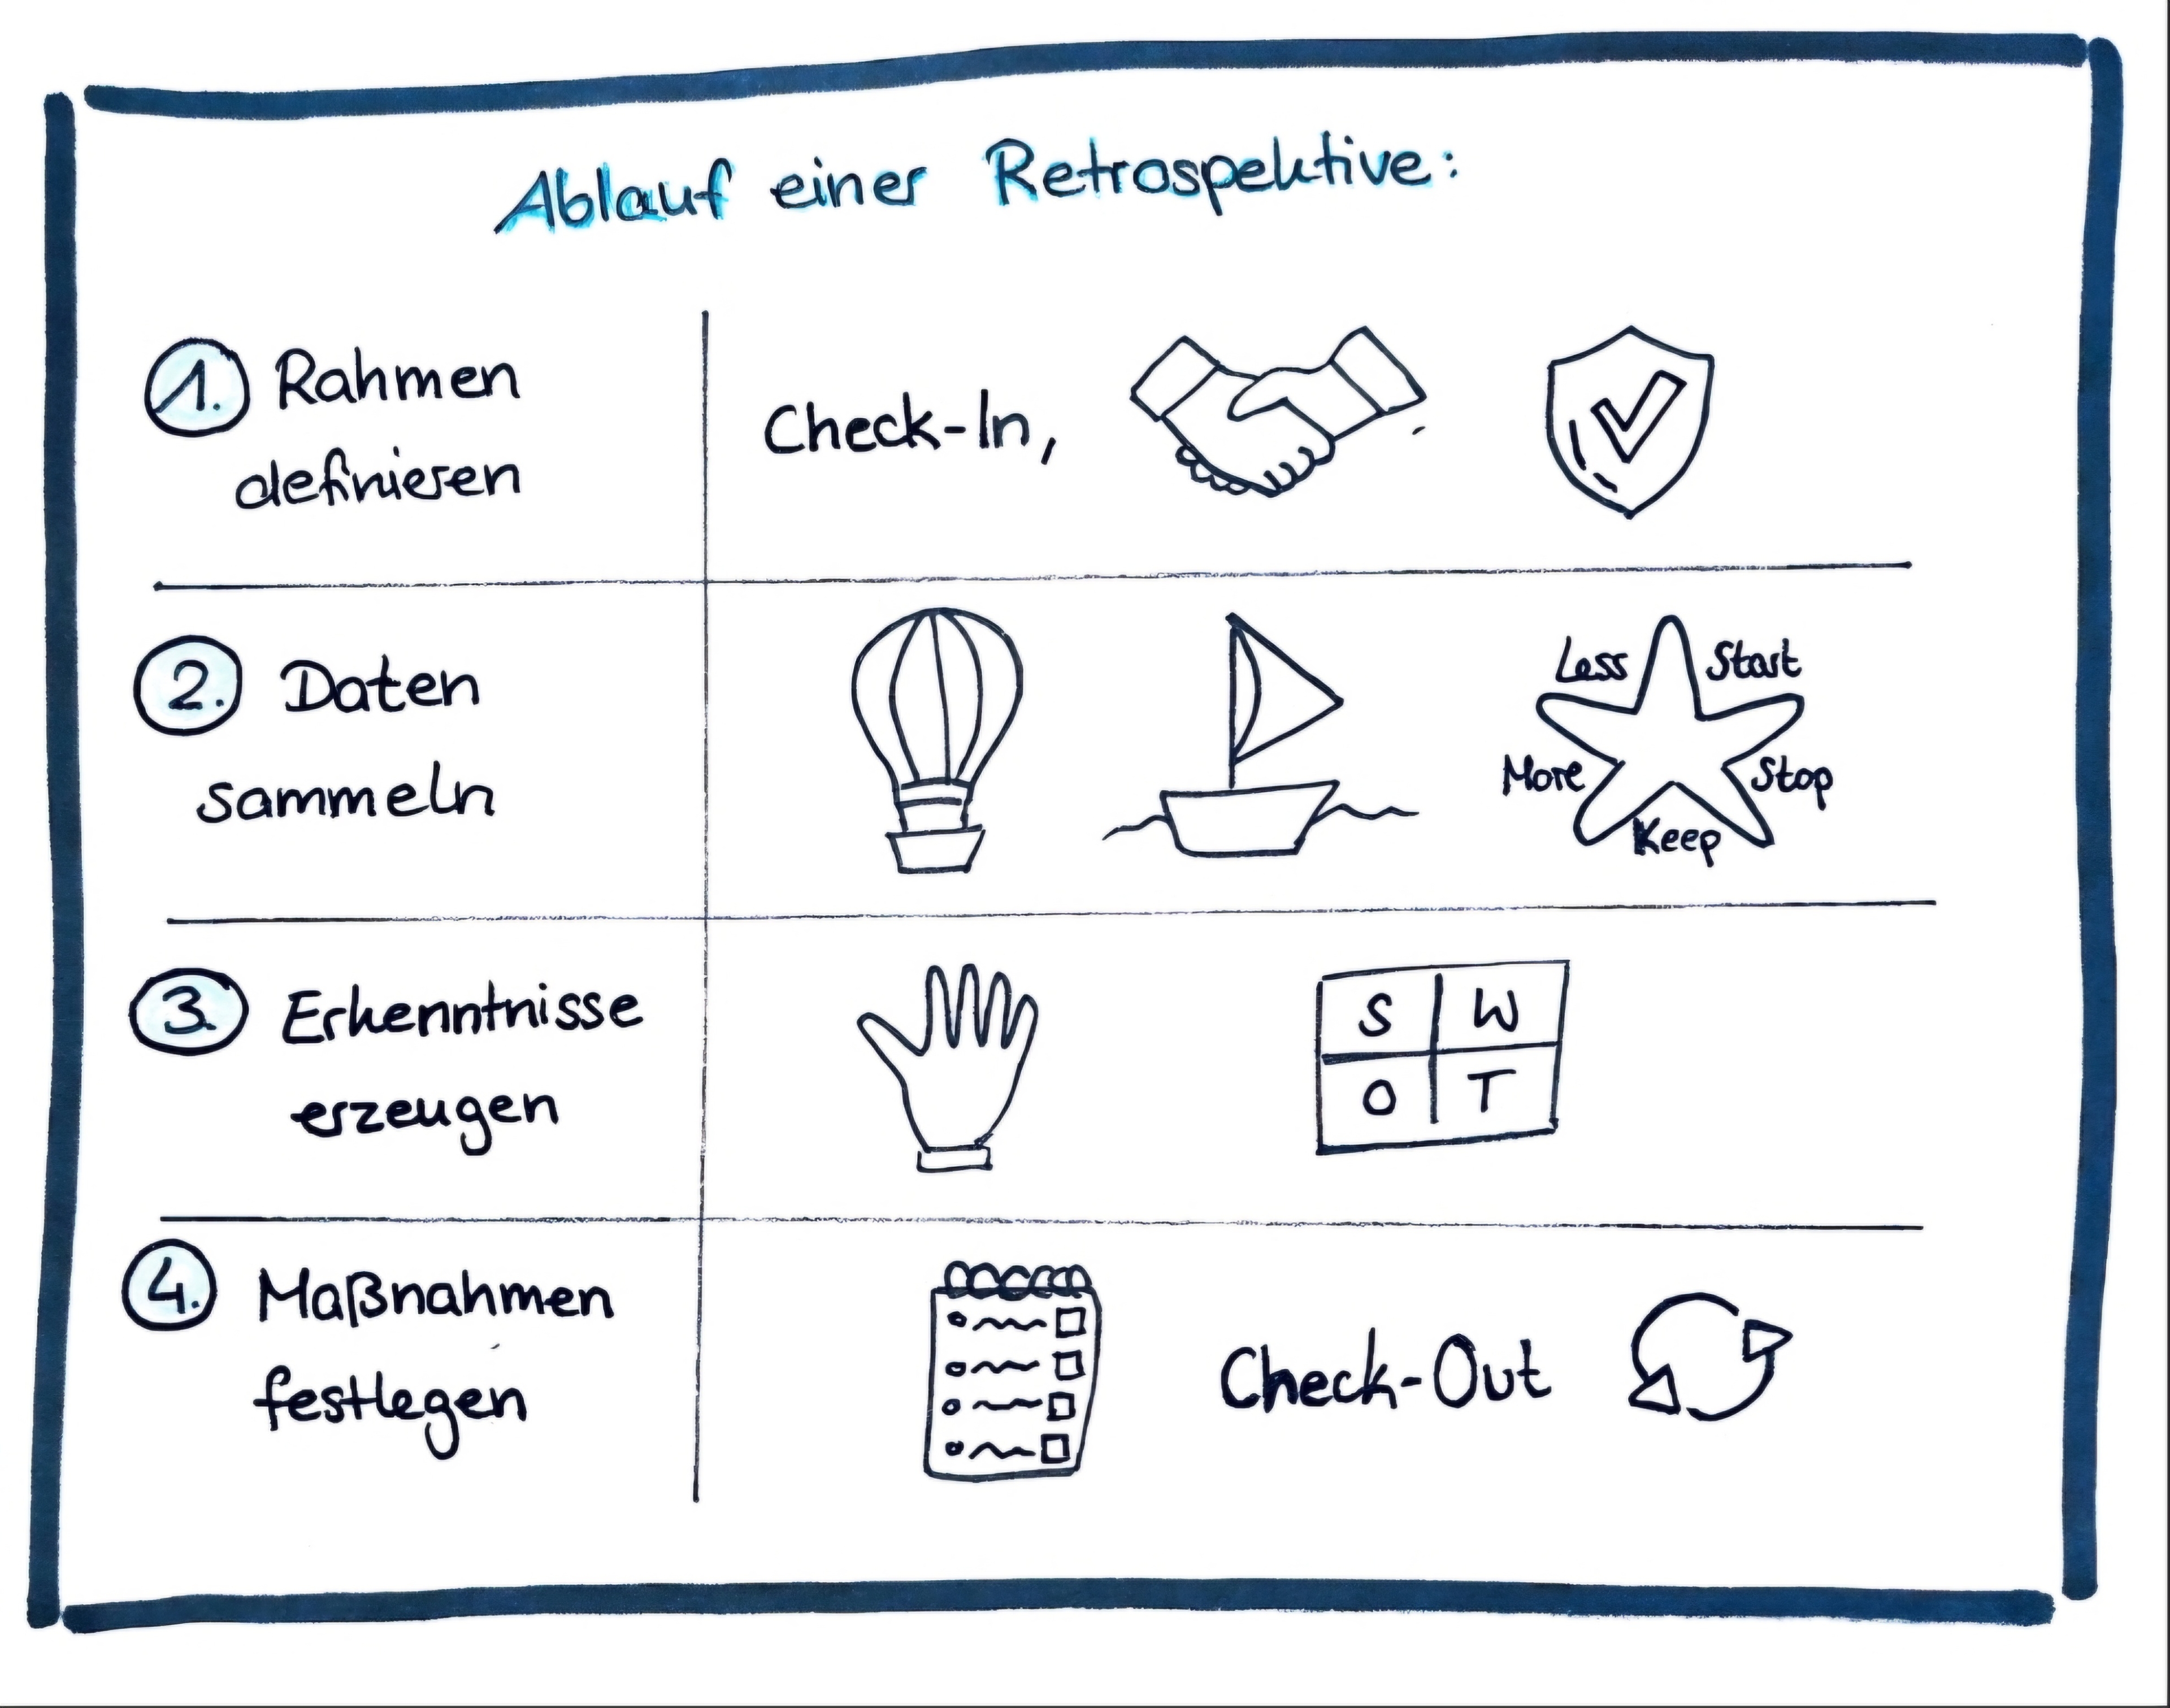 Ablauf einer Retrospektive:
1. Rahmen
definieren
Check-In,
2. Daten
sammeln
Less Start
More Stop
Keep
3. Erkenntnisse
erzeugen
S W
O T
4. Maßnahmen
festlegen
Check-Out